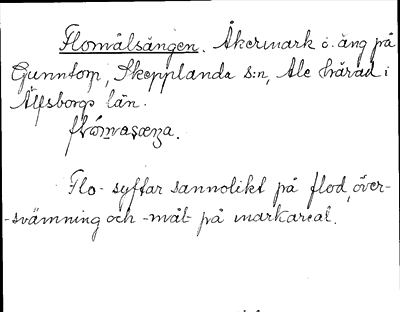 Flomålsängen. Åkermark o. äng på
Gunntorp, Skepplanda s:n, Ale härad i
Älfsborgs län.
Flo- syftar sannolikt på flod, över-
-svämning och -mål- på markareal.